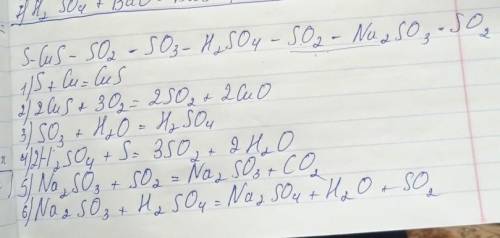 H₂SO₄ +
S-CuS-SO₂-SO₃-H₂SO₄-SO₂-Na₂SO₃-SO₂
1) S+Cu=CuS
2) 2CuS+3O₂=2SO₂+2CuO
3) SO₃+H₂O=H₂SO₄
4) 2H₂SO₄+S=3SO₂+2H₂O
5) Na₂SO₃+SO₂=Na₂SO₃+CO₂
6) Na₂SO₃+H₂SO₄=Na₂SO₄+H₂O+SO₂